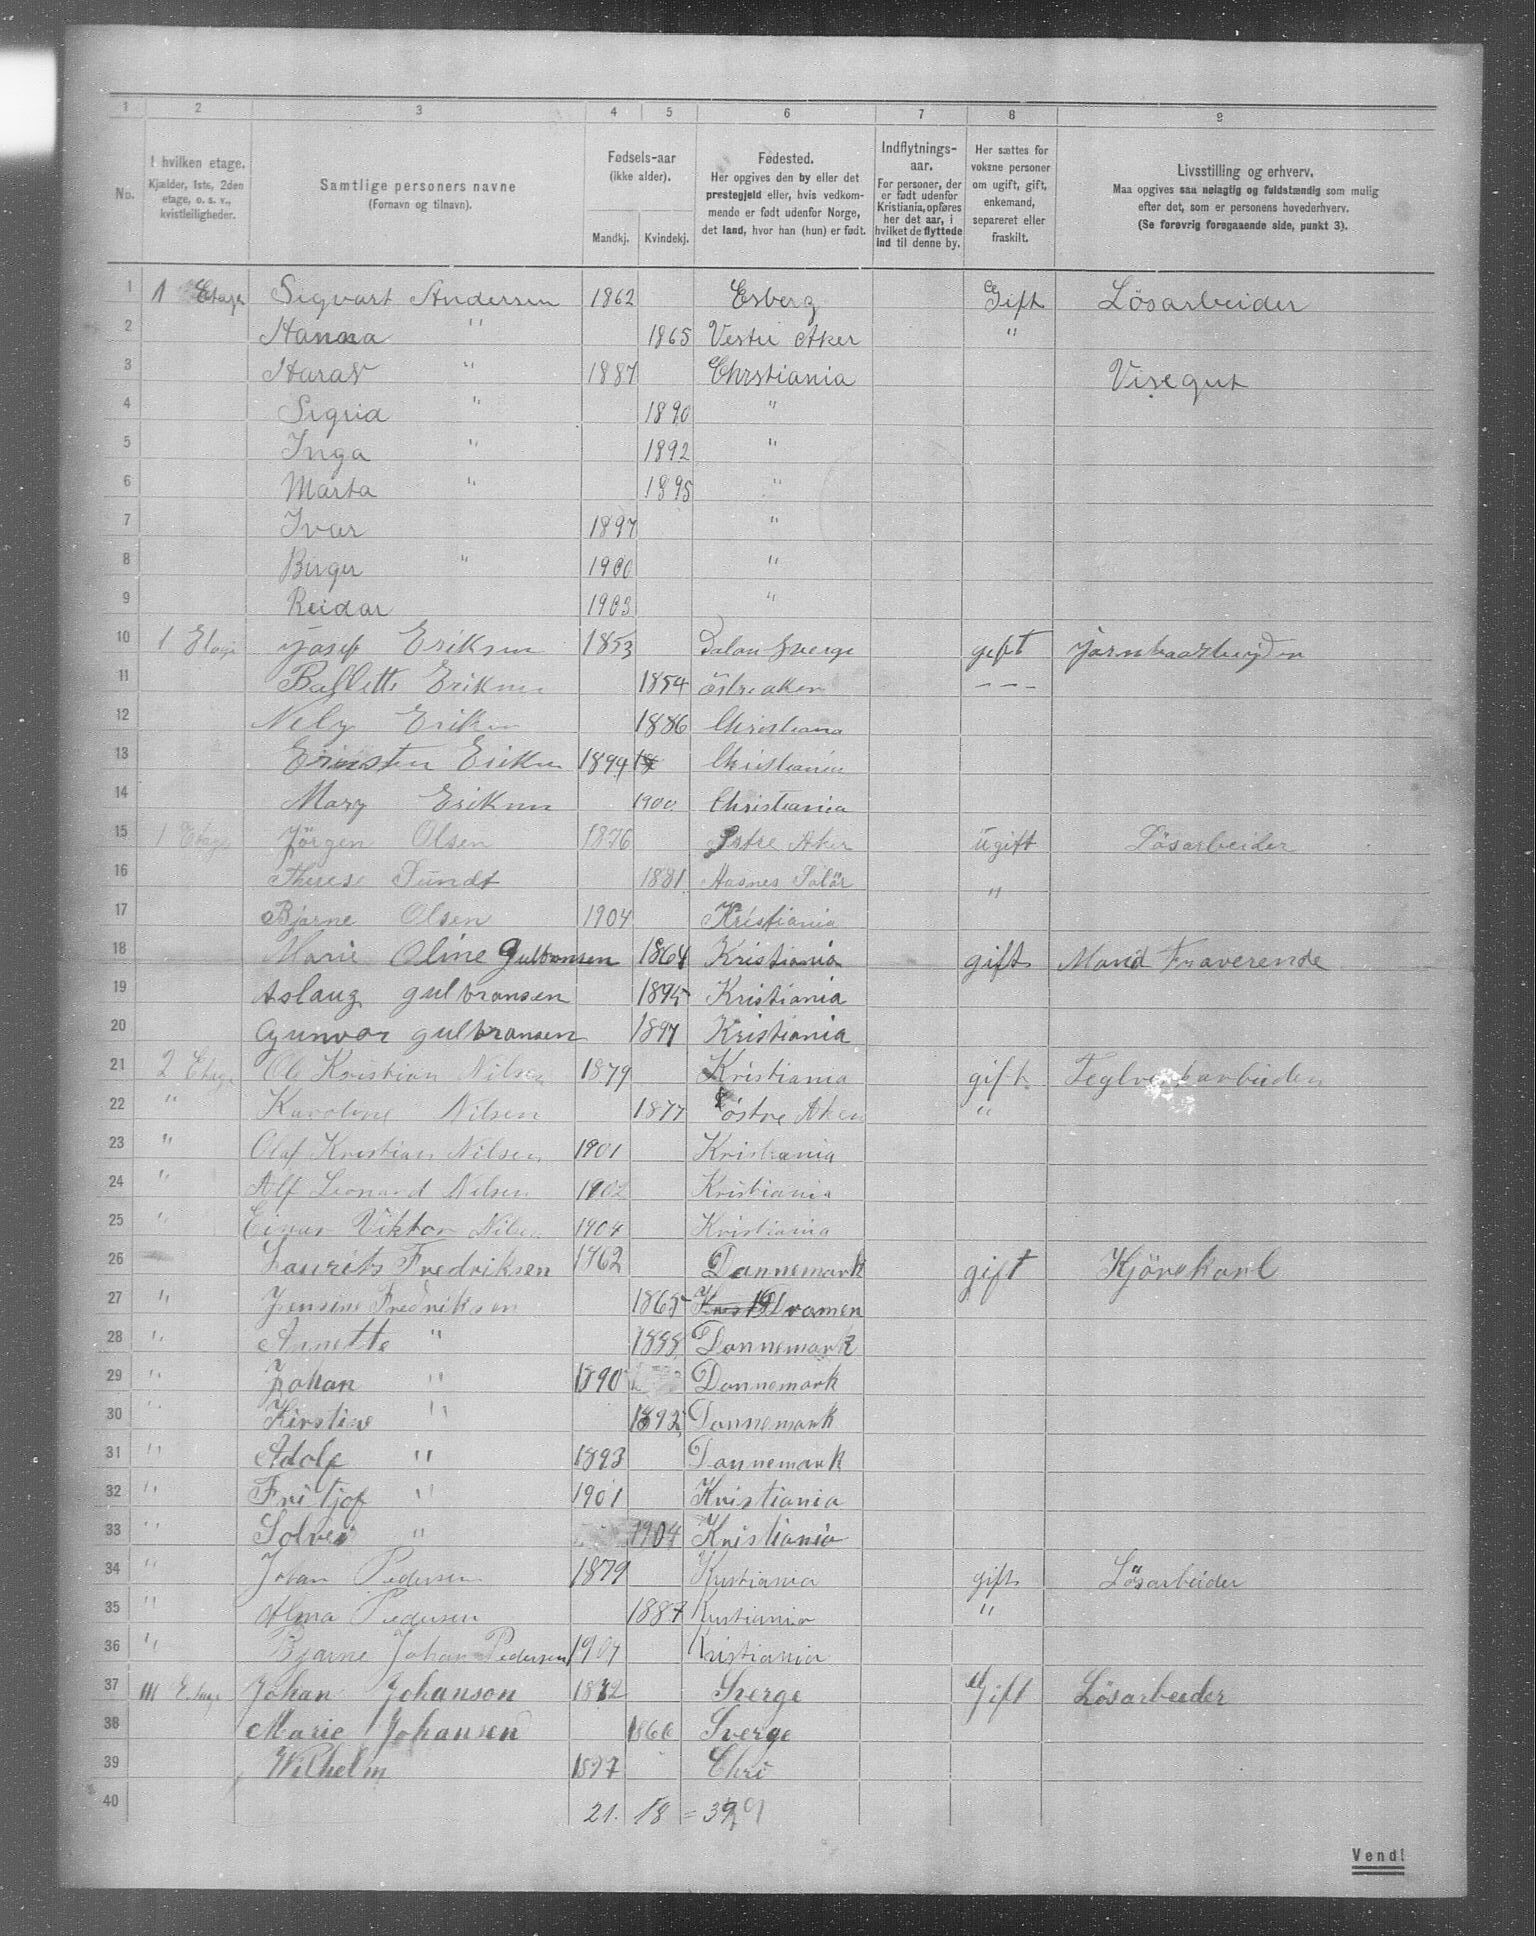 1 2 3 4 5 6 7 8 9
No. I hvilken etage. Kjælder, 1ste, 2den etage, o. s. v., kvistleiligheder. Samtlige personers navne (Fornavn og tilnavn). Fødsels-aar (ikke alder). Mandkj. Kvindekj. Fødested. Her opgives den by eller det prestegjeld eller, hvis vedkommende er født udenfor Norge, det land, hvor han (hun) er født. Indflytnings-aar. For personer, der er født udenfor Kristiania, opføres her det aar, i hvilket de flyttede ind til denne by. Her sættes for voksne personer om ugift, gift, enkemand, separeret eller fraskilt. Livsstilling og erhverv. Maa opgives saa nøiagtig og fuldstændig som mulig efter det, som er personens hovederhverv. (Se forøvrig foregaaende side, punkt 3).
1 1 Etage Sigvart Andersen 1862 Esberg Gift Lösarbeider
2 Hanna " 1865 Vestre Aker "
3 Harav " 1887 Chrstiania Visegut
4 Sigrid " 1890 "
5 Inga " 1892 "
6 Marta " 1895 "
7 Ivar 1897 "
8 Birger " 1900 "
9 Reidar 1903 "
10 1 Etage Josef Eriksen 1853 Dalan Sverge gift
11 Eriksen 1854 östre aker - - -
12 Nely Eriksen 1886 Christiana
13 Eriksen 1894 Christiania
14 Mary Eriksen 1900 Christiania
15 1 Etage Jörgen Olsen 1876 Østre Aker ugift Lösarbeider
16 Therese Sundt 1881 Aasnes Solör "
17 Bjarne Olsen 1904 Kristiania
18 Marie Oline Gulbransen 1864 Kristiania gift Mand Fraverende
19 Aslaug gulbransen 1895 Kristiania
20 Gunvor gulbransen 1897 Kristiania
21 2 Etage Ole Kristian Nilsen 1879 Kristiania gift Teglverkarbeider
22 " Karoline Nilsen 1877 östre Aker "
23 " Olaf Kristian Nilsen 1901 Kristiania
24 " Alf Leonard Nilsen 1902 Kristiania
25 " Einar Viktor Nilsen 1904 Kristiania
26 Laurits Fredriksen 1862 Dannemark gift Kjörekarl
27 " Jensine Fredriksen 1865 Dramen
28 " Annette " 1888 Dannemark
29 " Johan " 1890 Dannemark
30 " Kirstine " 1892 Dannemark
31 " Adolf " 1893 Dannemark
32 " Fritjof " 1901 Kristiania
33 " Solvei " 1904 Kristiania
34 " Johan Pedersen 1879 Kristiania gift Lösarbeider
35 " Alma Pedersen 1887 Kristiania "
36 " Bjarne Johan Pedersen 1904 Kristiania
37 III Etage Johan Johanson 1872 Sverge Gift Lösarbeider
38 Marie Johansen 1866 Sverge
39 Wilhelm 1897 Chri
40 21. 18 = 39
Vend!